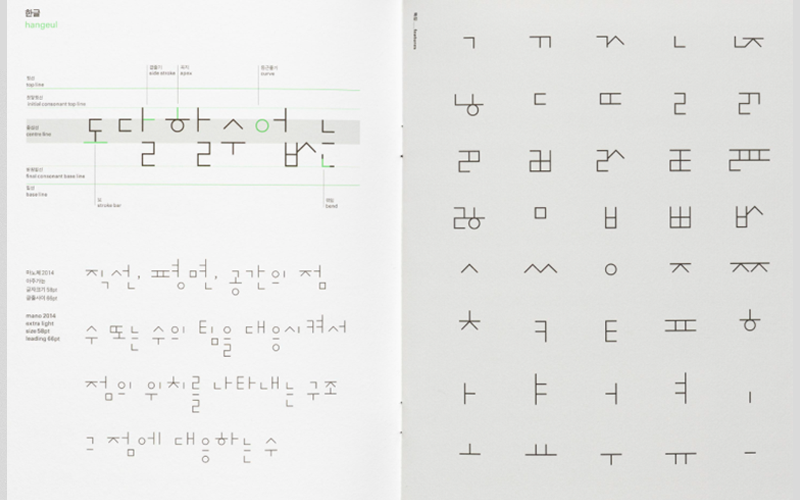 한글
hangeul
곁줄기
side stroke
꼭지
apex
둥근줄기
curve
윗선
top line
initial consonant top line
중심선
centre line
final consonant base line
밑선
base line
도달할수없는
보
stroke bar
bend
마노체 2014
아주가는
글자크기 58pt
글줄사이 68pt
mano 2014
extra light
size 58pt
leading 68pt
직선, 평면, 공간의 점
수 또는 수의 팀을 대응시켜서
점의 위치를 나타내는 구조
그 점에 대응하는 수
features
ㄱ ㄲ ㄳ ㄴ ㄵ
ㄶ ㄷ ㄸ ㄹ ㄺ
ㄻ ㄼ ㄽ ㄾ ㄿ
ㅀ ㅁ ㅂ ㅃ ㅄ
ㅅ ㅆ ㅇ ㅈ ㅉ
ㅊ ㅋ ㅌ ㅍ ㅎ
ㅏ ㅑ ㅓ ㅕ ㅣ
ㅗ ㅛ ㅜ ㅠ ㅡ